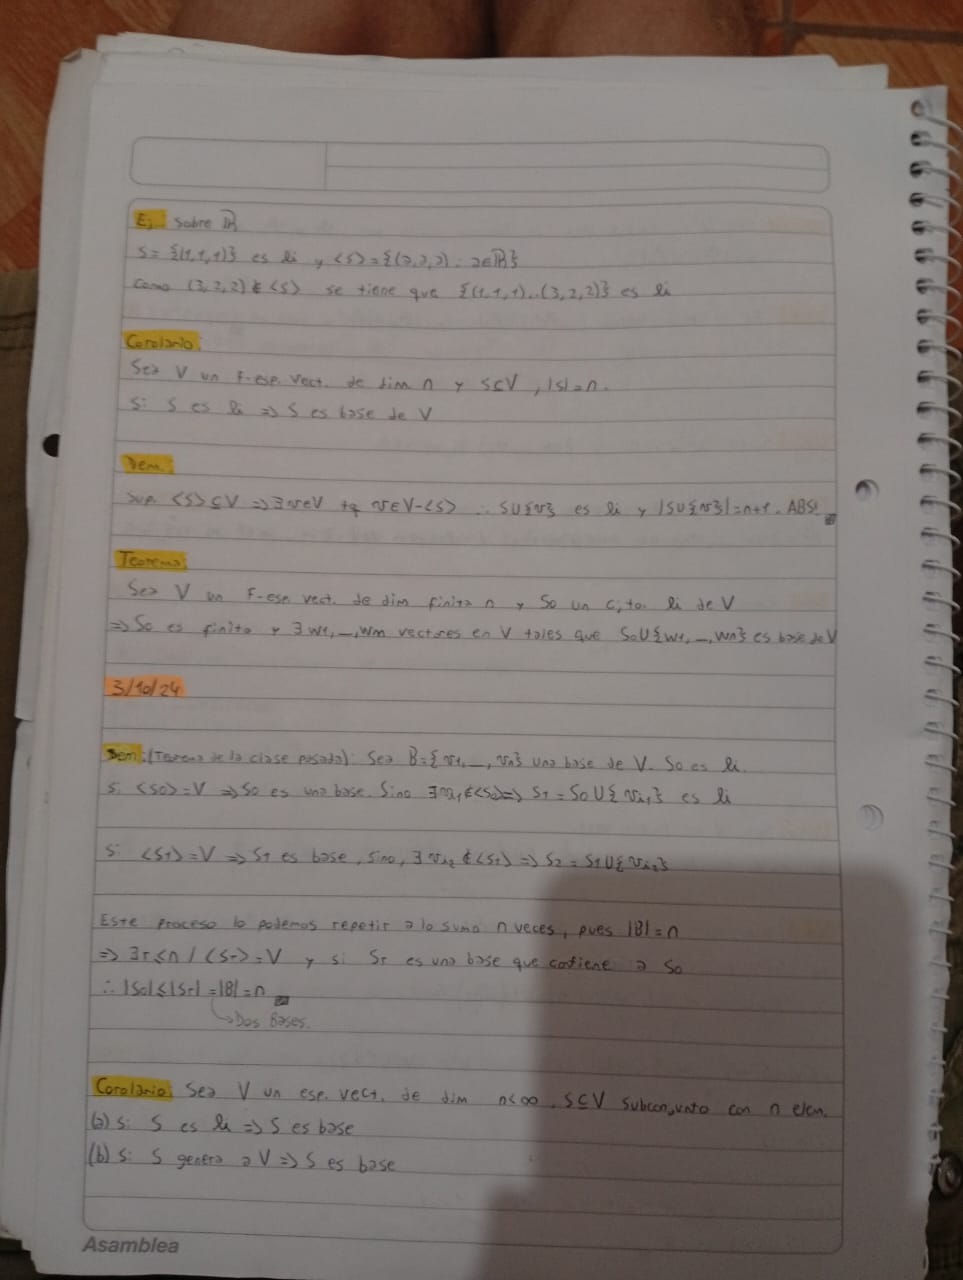 Ej: Sobre ℝ
S = {(1,1,1)} es li y <S> = {(a,a,a) : a∈ℝ}
Como (3,2,2) ∉ <S> se tiene que {(1,1,1),(3,2,2)} es li
Corolario:
Sea V un F-esp. vect. de dim n y S⊆V, |S|=n.
Si S es li => S es base de V
Dem:
Sup. <S> ⊊ V => ∃ v∈V tq v∈V-<S> ∴ S∪{v} es li y |S∪{v}|=n+1. ABS!
Teorema:
Sea V un F-esp. vect. de dim finita n y S0 un cjto. li de V
=> S0 es finito y ∃ w1, _, wm vectores en V tales que S0∪{w1, _, wm} es base de V
3/10/24
Dem: (Teorema de la clase pasada): Sea B={v1, _, vn} una base de V. S0 es li.
Si <S0> = V => S0 es una base. Sino ∃ vi1∉<S0> => S1 = S0 ∪ {vi1} es li
Si <S1> = V => S1 es base, sino, ∃ vi2 ∉ <S1> => S2 = S1∪{vi2}
Este proceso lo podemos repetir a lo sumo n veces, pues |B|=n
=> ∃ r≤n / <Sr> = V y si Sr es una base que contiene a S0
∴ |S0| ≤ |Sr| = |B| = n
Dos Bases.
Corolario: Sea V un esp. vect. de dim n<∞, S⊆V subconjunto con n elem.
(a) Si S es li => S es base
(b) Si S genera a V => S es base
Asamblea